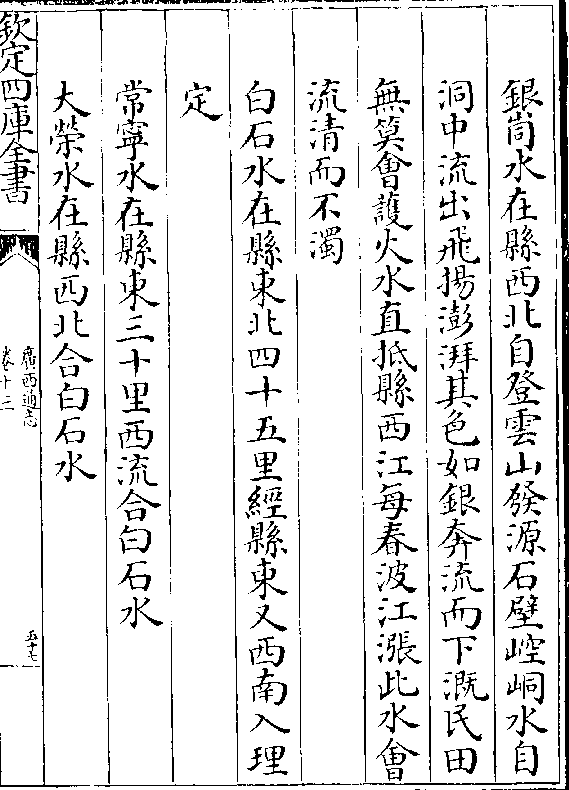 銀峝水在縣西北自登雲山發源石壁崆峒水自
洞中流出飛揚澎湃其色如銀奔流而下溉民田
無筭會護火水直抵縣西江每春波江漲此水會
流清而不濁
白石水在縣東北四十五里經縣東又西南入理
定
常寧水在縣東三十里西流合白石水
大榮水在縣西北合白石水
欽定四庫全書
廣西通志
卷十三
五十七